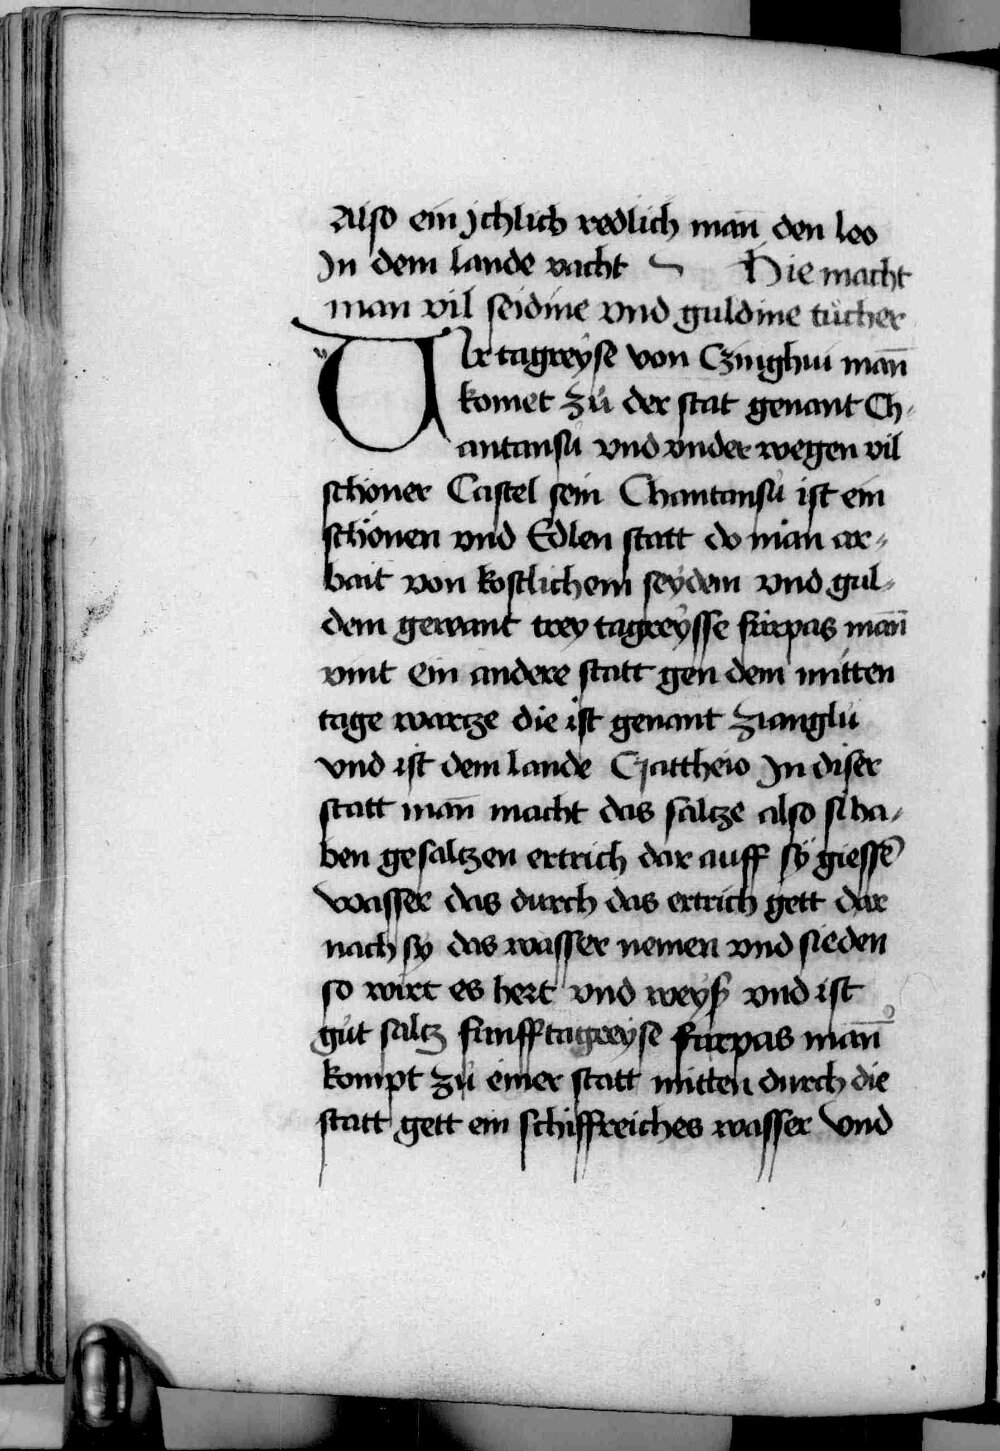 Also ein ichlich redlich man̄ den leo
Jn dem lande vacht ~ Hie macht
man vil seidine vnd guldine tůcher
Vir tagreyse von Czinghui man̄
komet zů der stat genant Ch-
antansů vnd vnder wegen vil
schoner Castel sein Chantansů ist ein
schönen vnd Edlen statt do man ar-
bait von kostlichem seydem vnd gul-
dem gewant trey tagreysse fürpas man̄
vint ein andere statt gen dem mitten
tage wartze die ist genant Zianglů
vnd ist dem lande Cattheio Jn diser
statt man̄ macht das saltze also si ha-
ben gesaltzen ertrich dar auff sy giessē
wasser das durch das ertrich gett dar
nach sy das wasser nemen vnd sieden
so wirt es hert vnd weyß vnd ist
gůt saltz funfftagreyse fürpas man̄
kompt zů einer statt mitten durch die
statt gett ein schiffreiches wasser vnd